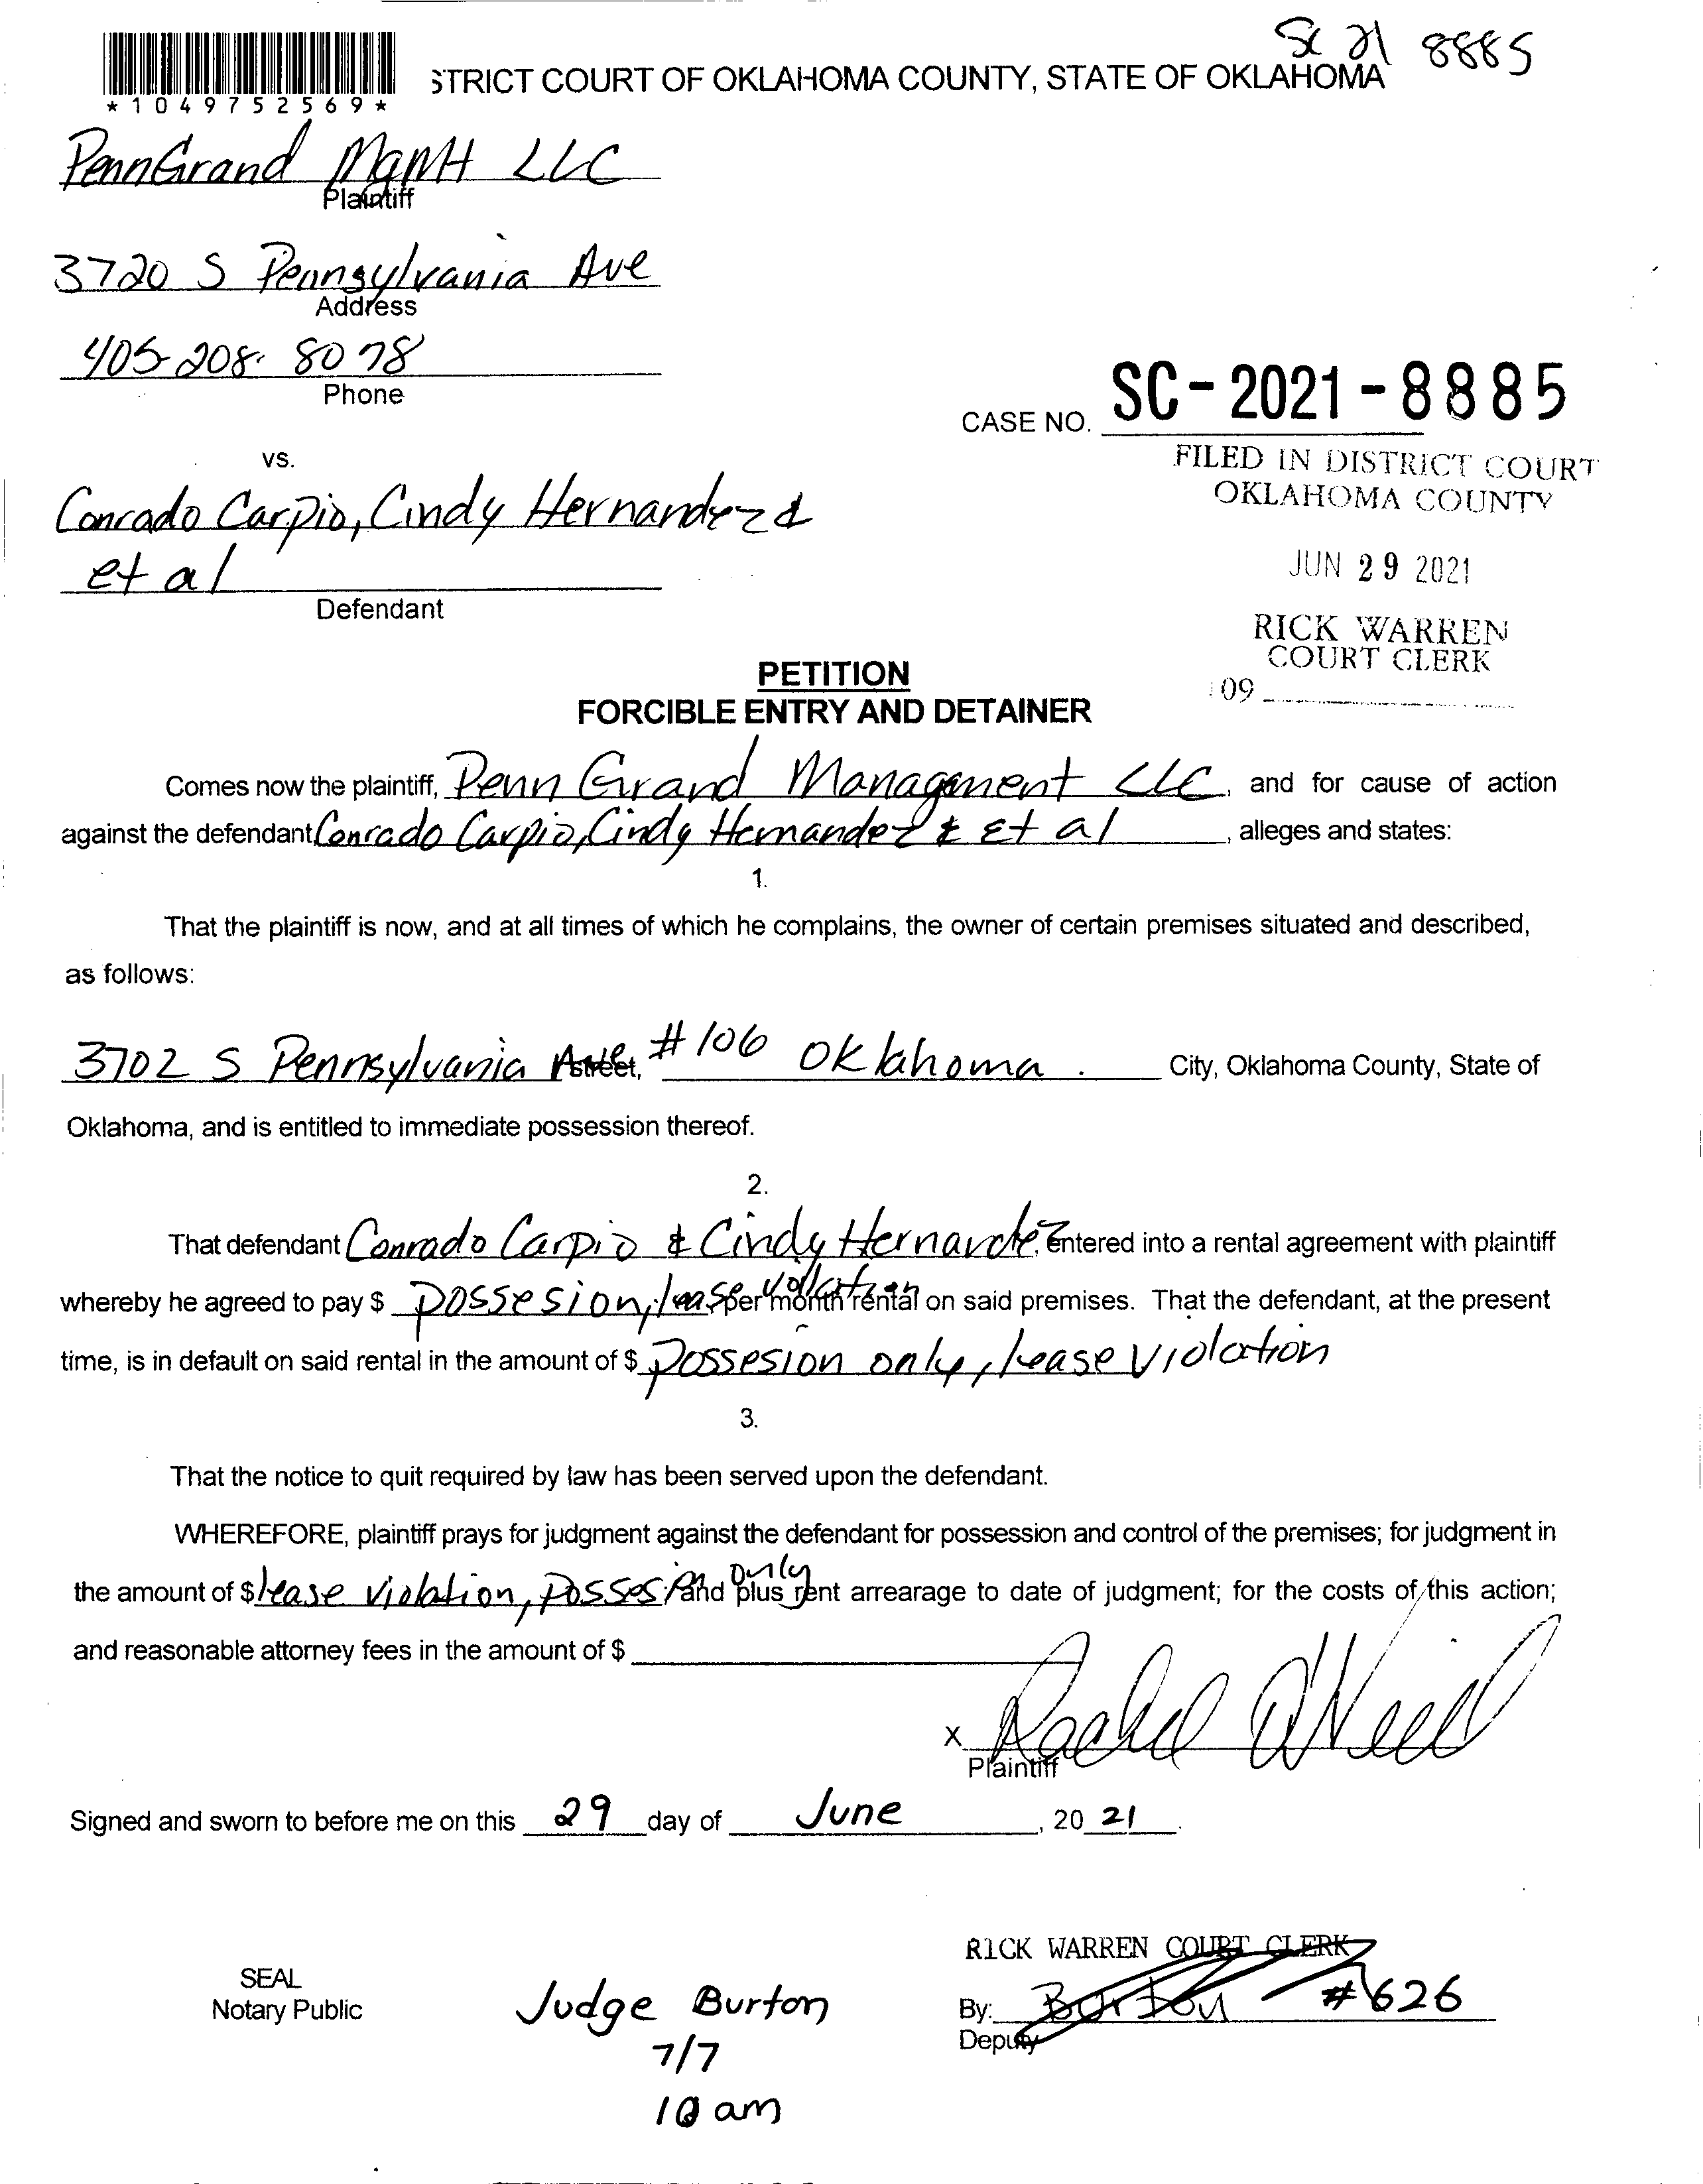 Sc 21 8885
STRICT COURT OF OKLAHOMA COUNTY, STATE OF OKLAHOMA
*1049752569*
PennGrand MgMt LLC
Plaintiff
3720 S Pennsylvania Ave
Address
405-208-8078
Phone
CASE NO. SC-2021-8885
vs.
FILED IN DISTRICT COURT
OKLAHOMA COUNTY
Conrado Carpio, Cindy Hernandez &
et al
Defendant
JUN 29 2021
RICK WARREN
COURT CLERK
109
PETITION
FORCIBLE ENTRY AND DETAINER
Comes now the plaintiff, Penn Grand Managment LLC, and for cause of action
against the defendant Conrado Carpio, Cindy Hernandez & Et al, alleges and states:
1.
That the plaintiff is now, and at all times of which he complains, the owner of certain premises situated and described,
as follows:
3702 S Pennsylvania Ave Street, #106 Oklahoma City, Oklahoma County, State of
Oklahoma, and is entitled to immediate possession thereof.
2.
That defendant Conrado Carpio & Cindy Hernandez, entered into a rental agreement with plaintiff
whereby he agreed to pay $ possesion, lease violation per month rental on said premises. That the defendant, at the present
time, is in default on said rental in the amount of $ possesion only, lease violation
3.
That the notice to quit required by law has been served upon the defendant.
WHEREFORE, plaintiff prays for judgment against the defendant for possession and control of the premises; for judgment in
the amount of $ lease violation, possesion only and plus rent arrearage to date of judgment; for the costs of this action;
and reasonable attorney fees in the amount of $
x Rachel O'Neill
Plaintiff
Signed and sworn to before me on this 29 day of June, 20 21.
RICK WARREN COURT CLERK
SEAL
Notary Public
Judge Burton
7/7
10 am
By: Burton #626
Deputy